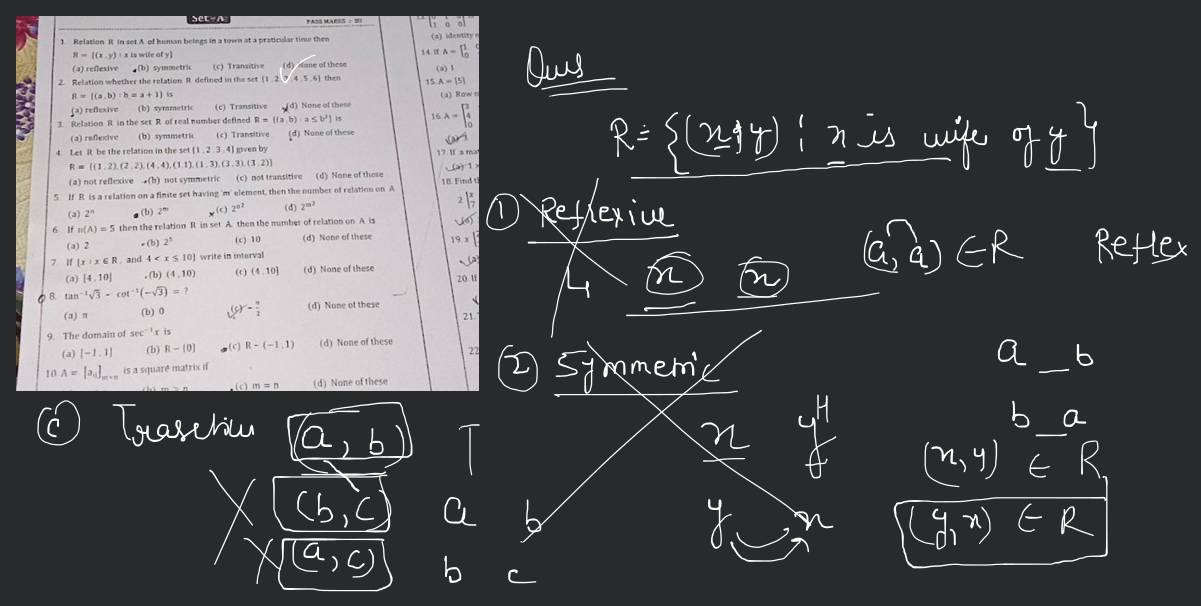 Set-A
PASS MARKS : 30
1. Relation R in set A of human beings in a town at a praticular time then
R = {(x, y) : x is wife of y}
(a) reflexive (b) symmetric (c) Transitive (d) None of these
2. Relation whether the relation R defined in the set {1, 2, 4, 5, 6} then
R = {(a, b) : b = a + 1} is
(a) reflexive (b) symmetric (c) Transitive (d) None of these
3. Relation R in the set R of real number defined R = {(a, b) : a ≤ b²} is
(a) reflexive (b) symmetric (c) Transitive (d) None of these
4. Let R be the relation in set {1, 2, 3, 4} given by
R = {(1, 2), (2, 2), (4, 4), (1, 1), (1, 3), (3, 3), (3, 2)}
(a) not reflexive (b) not symmetric (c) not transitive (d) None of these
5. If R is a relation on a finite set having 'm' element, then the number of relation on A
(a) 2ⁿ (b) 2ᵐ (c) (d)
6. If n(A) = 5 then the relation R in set A, then the number of relation on A is
(a) 2 (b) 2⁵ (c) 10 (d) None of these
7. If {x : x ∈ R, and 4 < x ≤ 10} write in interval
(a) [4, 10] (b) (4, 10) (c) (4, 10] (d) None of these
8. tan⁻¹√3 - cot⁻¹(-√3) = ?
(a) π (b) 0 (c) -π/2 (d) None of these
9. The domain of sec⁻¹x is
(a) [-1, 1] (b) R - {0} (c) R - (-1, 1) (d) None of these
10. A = [aᵢⱼ]ₘₓₙ is a square matrix if
(c) m = n (d) None of these
(a) identity
14. If A =
(a) 1
15. A = [5]
(a) Row
16. A =
17. If a
18. Find
19. x
20. If
21.
22
Ques
R = {(x, y) : x is wife of y}
① Reflexive
x x
(a, a) ∈ R Reflex
② Symmetric
a _ b
b _ a
x y
y x
(x, y) ∈ R
(y, x) ∈ R
(c)
(a, b) T
(b, c) a b
(a, c) b c